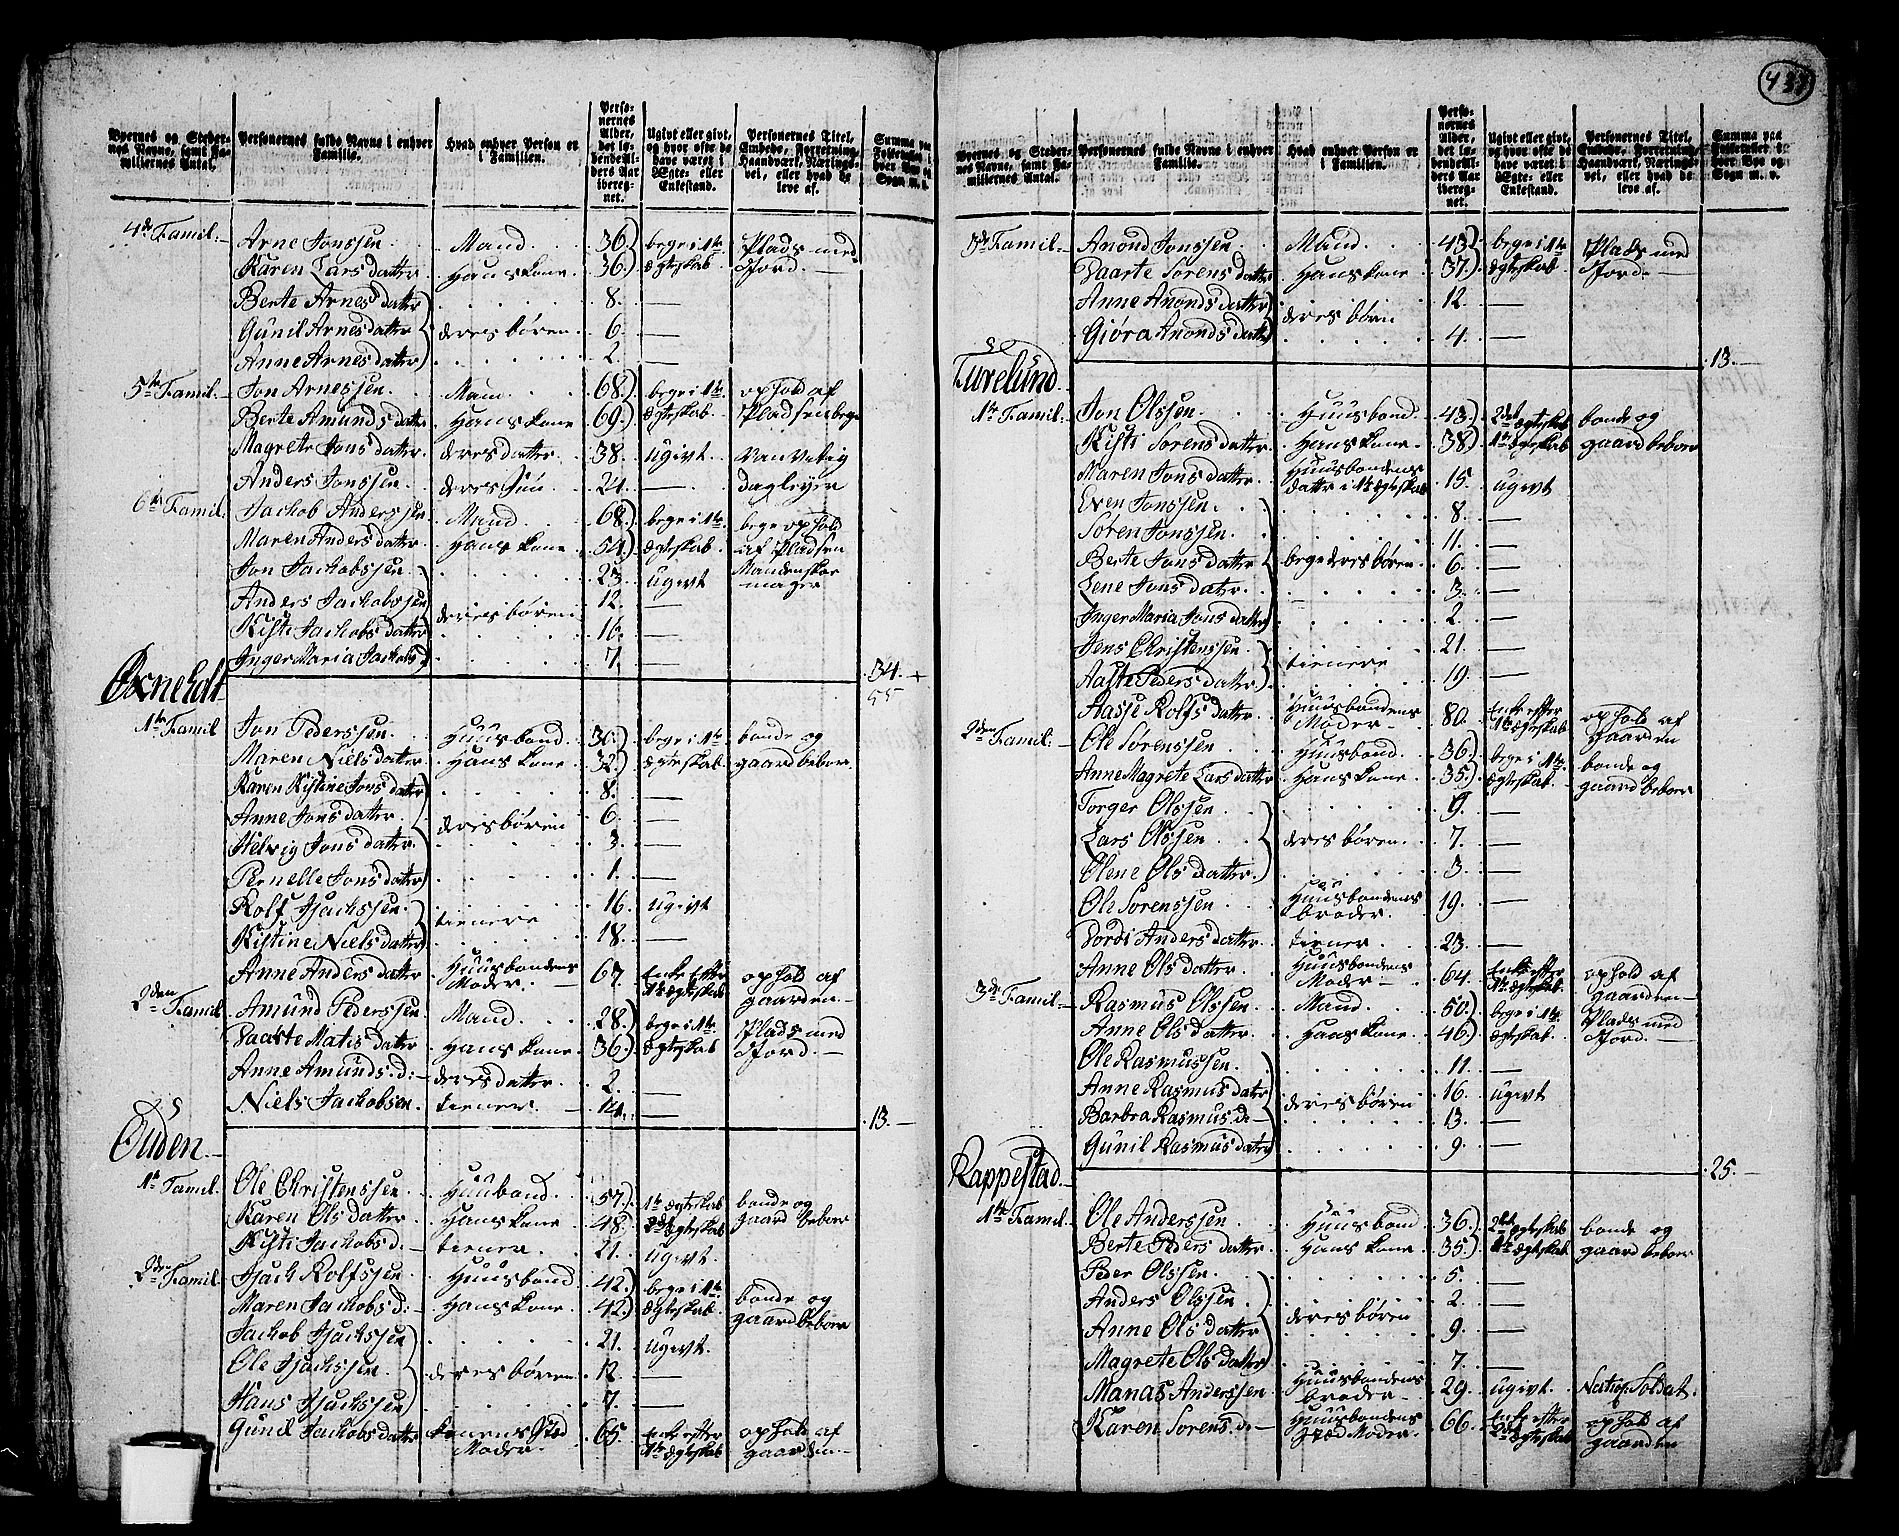 437
Byernes og Steder-
nes Navne, samt Fa-
miliernes Antal.
Personernes fulde Navne i enhver
Familie.
Hvad enhver Person er
i Familien.
Perso-
nernes
Alder,
det lø-
bende Al-
ders Aar
ibereg-
net.
Ugivt eller givt,
og hvor ofte de
have været i
Ægte- eller
Enkestand.
Personernes Titel,
Embede, Forretning,
Haandværk, Nærings-
vei, eller hvad de
leve af.
Summa paa
Folketallet i
hver Bye og
Sogn m. v.
4de Famil. Arne Jonssen. Mand. 36.) bege i 1te Plads med
Karen Lars datter Hans kone. 36.) ægteskab Jord. —
Berte Arnes datter 8. —
Gunil Arnes datter deres børen. 6. —
Anne Arnes datter 2. —
5te Famil. Jon Arnessen. Mann. 68.) bege i 1te ophold af
Berte Amunds datter Hans kone 69.) ægteskab. Pladsen bege
Magrete Jons datter. deres datter. 38. ugivt. vanvitig
Anders Jonssen. deres Søn. 21. — dagleyer
6te Famil. Jachob Anderssen Mand. 68.) bege i 1te bege ophold
Maren Anders datter. Hans kone. 54.) ægteskab. af Pladsen
Jon Jachobssen. 23. ugivt Manden skoe
mager
Anders Jachobssen 12. —
Kisti Jachobs datter deres børen 16. —
Inger Maria Jachobs d 7. —
34. +
55
Oxneholt
1te Famil Jon Pederssen. Huusbond. 30.) bege i 1te bonde og
Maren Niels datter Hans kone. 32.) ægteskab. gaard beboer.
Karen Kistine Jons datter 8. —
Anne Jons datter. deres børen 6. —
Helvig Jons datter. 3. —
Pernelle Jons datter 1. —
Rolf Jsachssen. tienere 16. ugivt
Kistine Niels datter 18. —
Anne Anders datter Huusbondens
Moder. — 67. Enke Efter
1te ægteskab ophold af
gaarden.
2den Famil Amund Pederssen. Mand. 28.) bege i 1te Plads med
Paaste Matis datter Hans kone. 36.) ægteskab Jord. —
Anne Amunds. d: — deres datter. 2. —
Niels Jachobsen. tiener. 14. —
13. —
25
Ouden. —
1te Famil. Ole Christenssen. Huubond. 57.) 1te ægteskab bonde og
Karen Ols datter. Hans kone 48.) 2det ægteskab gaard beboer
Kisti Jachobs d. — tiener. 21. ugivt.
2den Famil. Jsach Rolfssen. Huusbond 42.) bege i 1te bonde og
Maren Jachobs d: — Hans kone. 42.) ægteskab. gaard beboer
Jachob Jsachssen 21. ugivt.
Ole Jsachssen. deres børen 12. —
Hans Jsachssen 7. —
Gunil Jachobs datter konens Sted
Moder. 65. Enke efter
1te ægteskab ophold af
gaarden —
Byernes og Steder-
nes Navne, samt Fa-
miliernes Antal.
Personernes fulde Navne i enhver
Familie.
Hvad enhver Person er
i Familien.
Perso-
nernes
Alder,
det lø-
bende Al-
ders Aar
ibereg-
net.
Ugivt eller givt,
og hvor ofte de
have været i
Ægte- eller
Enkestand.
Personernes Titel,
Embede, Forretning,
Haandværk, Nærings-
vei, eller hvad de
leve af.
Summa paa
Folketallet i
hver Bye og
Sogn m. v.
3de Famil. — Anond Jonssen. Mand. 43.) bege i 1te Plads med
Paarte Sørens datter Hans kone. 37.) ægteskab. Jord. —
Anne Anonds datter deres børen 12. —
Giøra Anonds datter 4. —
13. —
Turelund
1te Famil. Jon Olssen. Huusbond. 43.) 2det ægteskab bonde og
Kisti Sørens datter. Hans kone. 38.) 1te ægteskab gaard beboer
Maren Jons datter. Huusbondens
datter i 1te ægteskab 15. ugivt
Even Jonssen. 8. —
Søren Jonssen. 11. —
Berte Jons datter bege deres børen. 6. —
Lene Jons datter. 3. —
Inger Maria Jons datter 2. —
Jens Christenssen. tienere 21. —
Aaste Peders datter. 19. —
Aasse Rolfs datter. Huusbondens
Moder. — 80. Enke efter
1te ægteskab ophold af
gaarden
2den Famil. — Ole Sørenssen Huusbond. 36.) bege i 1te bonde og
Anne Magrete Lars datter Hans kone. 35.) ægteskab. gaard beboer
Torger Olssen 9. —
Lars Olssen deres børen. 7. —
Olene Ols datter. 3. —
Ole Sørenssen Huusbondens
broder. 19. —
Dordi Anders datter. tiener. 23. —
Anne Ols datter. Huusbondens
Moder — 64. Enke efter
1te ægteskab. ophold af
gaarden —
3de Famil. — Rasmus Olssen. Mand. 50.) bege i 1te Plads med
Anne Ols datter. Hans kone. 46.) ægteskab. Jord. —
Ole Rasmussen. 11. —
Anne Rasmus datter deres børen 16. ugivt
Barbra Rasmus. d: — 13. —
Gunil Rasmus datter 9. —
25. —
Rappestad. —
1te Famil. Ole Anderssen. Huusbond 36.) 2det ægteskab bonde og
Berte Peders datter. Hans kone. 35.) 1te ægteskab gaard beboer
Peder Olssen. 5. —
Anders Olssen. deres børen 2. —
Anne Ols datter 9. —
Magrete Ols datter 7. —
Manas Anderssen Huusbondens
broder — 29. ugivt. Natio. Soldat.
Karen Sørens. d: — Huusbondens
Sted Moder. 66. Enke efter
2det ægteskab. ophold af
gaarden